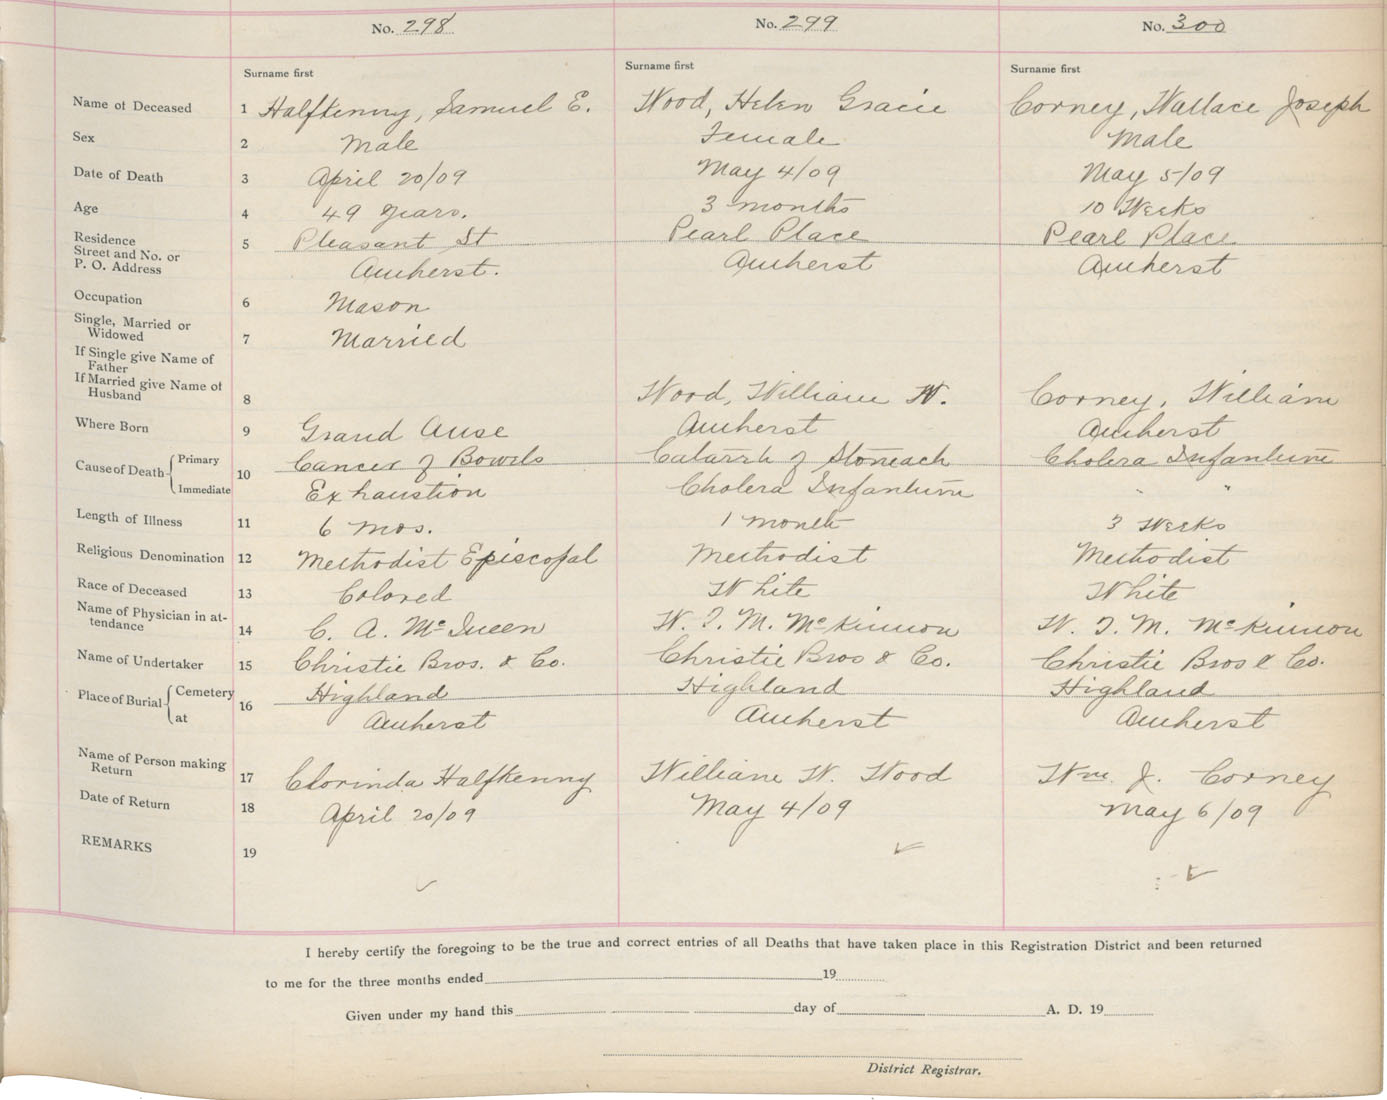 No. 298 No. 299 No. 300
Surname first Surname first Surname first
Name of Deceased 1 Halfkenny, Samuel E. Wood, Helen Gracie Corney, Wallace Joseph
Sex 2 Male Female Male
Date of Death 3 April 20/09 May 4/09 May 5/09
Age 4 49 years. 3 months 10 Weeks
Residence 5 Pleasant St Pearl Place Pearl Place
Street and No. or
P. O. Address Amherst. Amherst Amherst
Occupation 6 Mason
Single, Married or
Widowed 7 Married
If Single give Name of
Father
If Married give Name of
Husband 8 Wood, William W. Corney, William
Where Born 9 Grand Anse Amherst Amherst
Cause of Death Primary 10 Cancer of Bowels Catarrh of Stomach Cholera Infantum
Immediate Exhaustion Cholera Infantum " "
Length of Illness 11 6 mos. 1 month 3 Weeks
Religious Denomination 12 Methodist Episcopal Methodist Methodist
Race of Deceased 13 Colored White White
Name of Physician in at-
tendance 14 C. A. McQueen W. T. M. McKinnon W. T. M. McKinnon
Name of Undertaker 15 Christie Bros. & Co. Christie Bros & Co. Christie Bros & Co.
Place of Burial Cemetery 16 Highland Highland Highland
at Amherst Amherst Amherst
Name of Person making
Return 17 Clorinda Halfkenny William W. Wood Wm. J. Corney
Date of Return 18 April 20/09 May 4/09 May 6/09
REMARKS 19
I hereby certify the foregoing to be the true and correct entries of all Deaths that have taken place in this Registration District and been returned
to me for the three months ended 19
Given under my hand this day of A. D. 19
District Registrar.